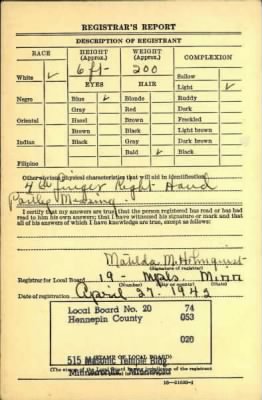 REGISTRAR'S REPORT
DESCRIPTION OF REGISTRANT
RACE HEIGHT (Approx.) WEIGHT (Approx.) COMPLEXION
White ✓ 6 ft- 200 Sallow
EYES HAIR Light ✓
Negro Blue ✓ Blonde Ruddy
Gray Red Dark
Oriental Hazel Brown Freckled
Brown Black Light brown
Indian Black Gray Dark brown
Bald ✓ Black
Filipino
Other obvious physical characteristics that will aid in identification
4th finger Right Hand
Partly Missing
I certify that my answers are true; that the person registered has read or has had
read to him his own answers; that I have witnessed his signature or mark and that
all of his answers of which I have knowledge are true, except as follows:
Matilda M. Holmquist
(Signature of registrar)
Registrar for Local Board 19 - Mpls. Minn
(Number) (City or county) (State)
Date of registration April 27. 1942
Local Board No. 20 74
Hennepin County 053
020
515 Masonic Temple Bldg
(STAMP OF LOCAL BOARD)
Minneapolis, Minnesota
(The stamp of the Local Board having jurisdiction of the registrant
16—21630-1